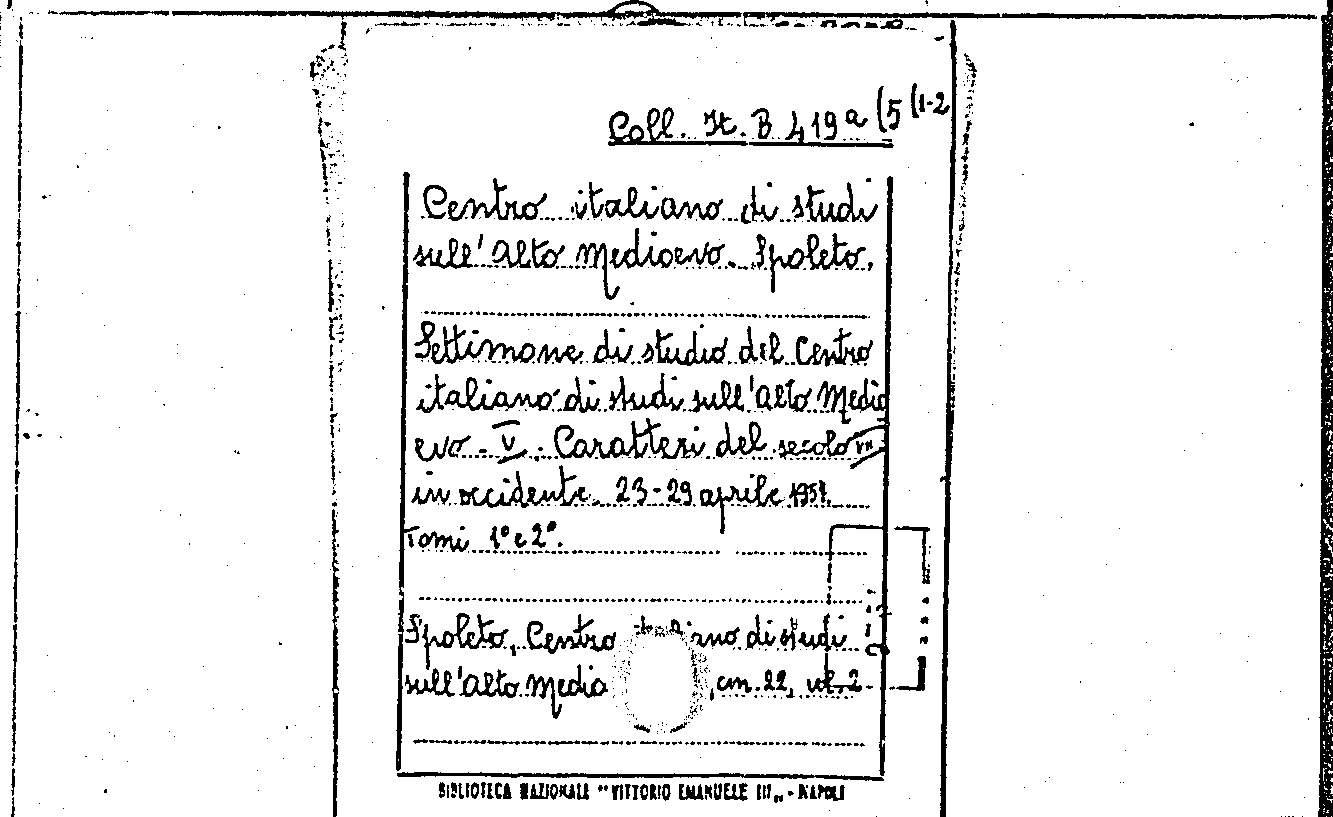 Coll. It. B 419a (5 (1-2
Centro italiano di studi
sull'Alto Medioevo. Spoleto.
Settimane di studio del Centro
italiano di studi sull'Alto Medio
evo - V. Caratteri del secolo VII
in occidente. 23-29 aprile 1957.
Tomi 1° e 2°.
Spoleto, Centro italiano di studi
sull'Alto Medio , cm. 22, vol. 2
BIBLIOTECA NAZIONALE "VITTORIO EMANUELE III„ - NAPOLI